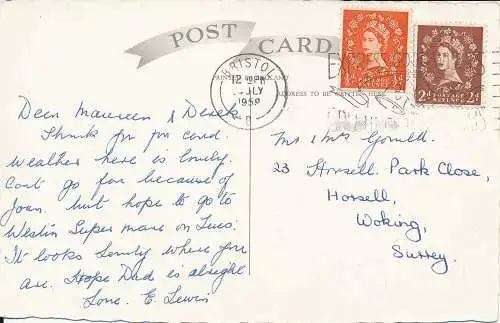 POST CARD
BRISTOL
12 PM
JULY
1958
ADDRESS TO BE WRITTEN HERE
POSTAGE REVENUE
2d 2d
Dear Maureen & Derek
Thanks for card.
Weather here is lovely.
Cant go far because of
Joan. but hope to go to
Westin Super mare on Tues:
It looks lovely where you
are. Hope Dad is alright
Love. E. Lewis
Mr & Mrs Gomald.
23 Horsell Park Close,
Horsell,
Woking,
Surrey.